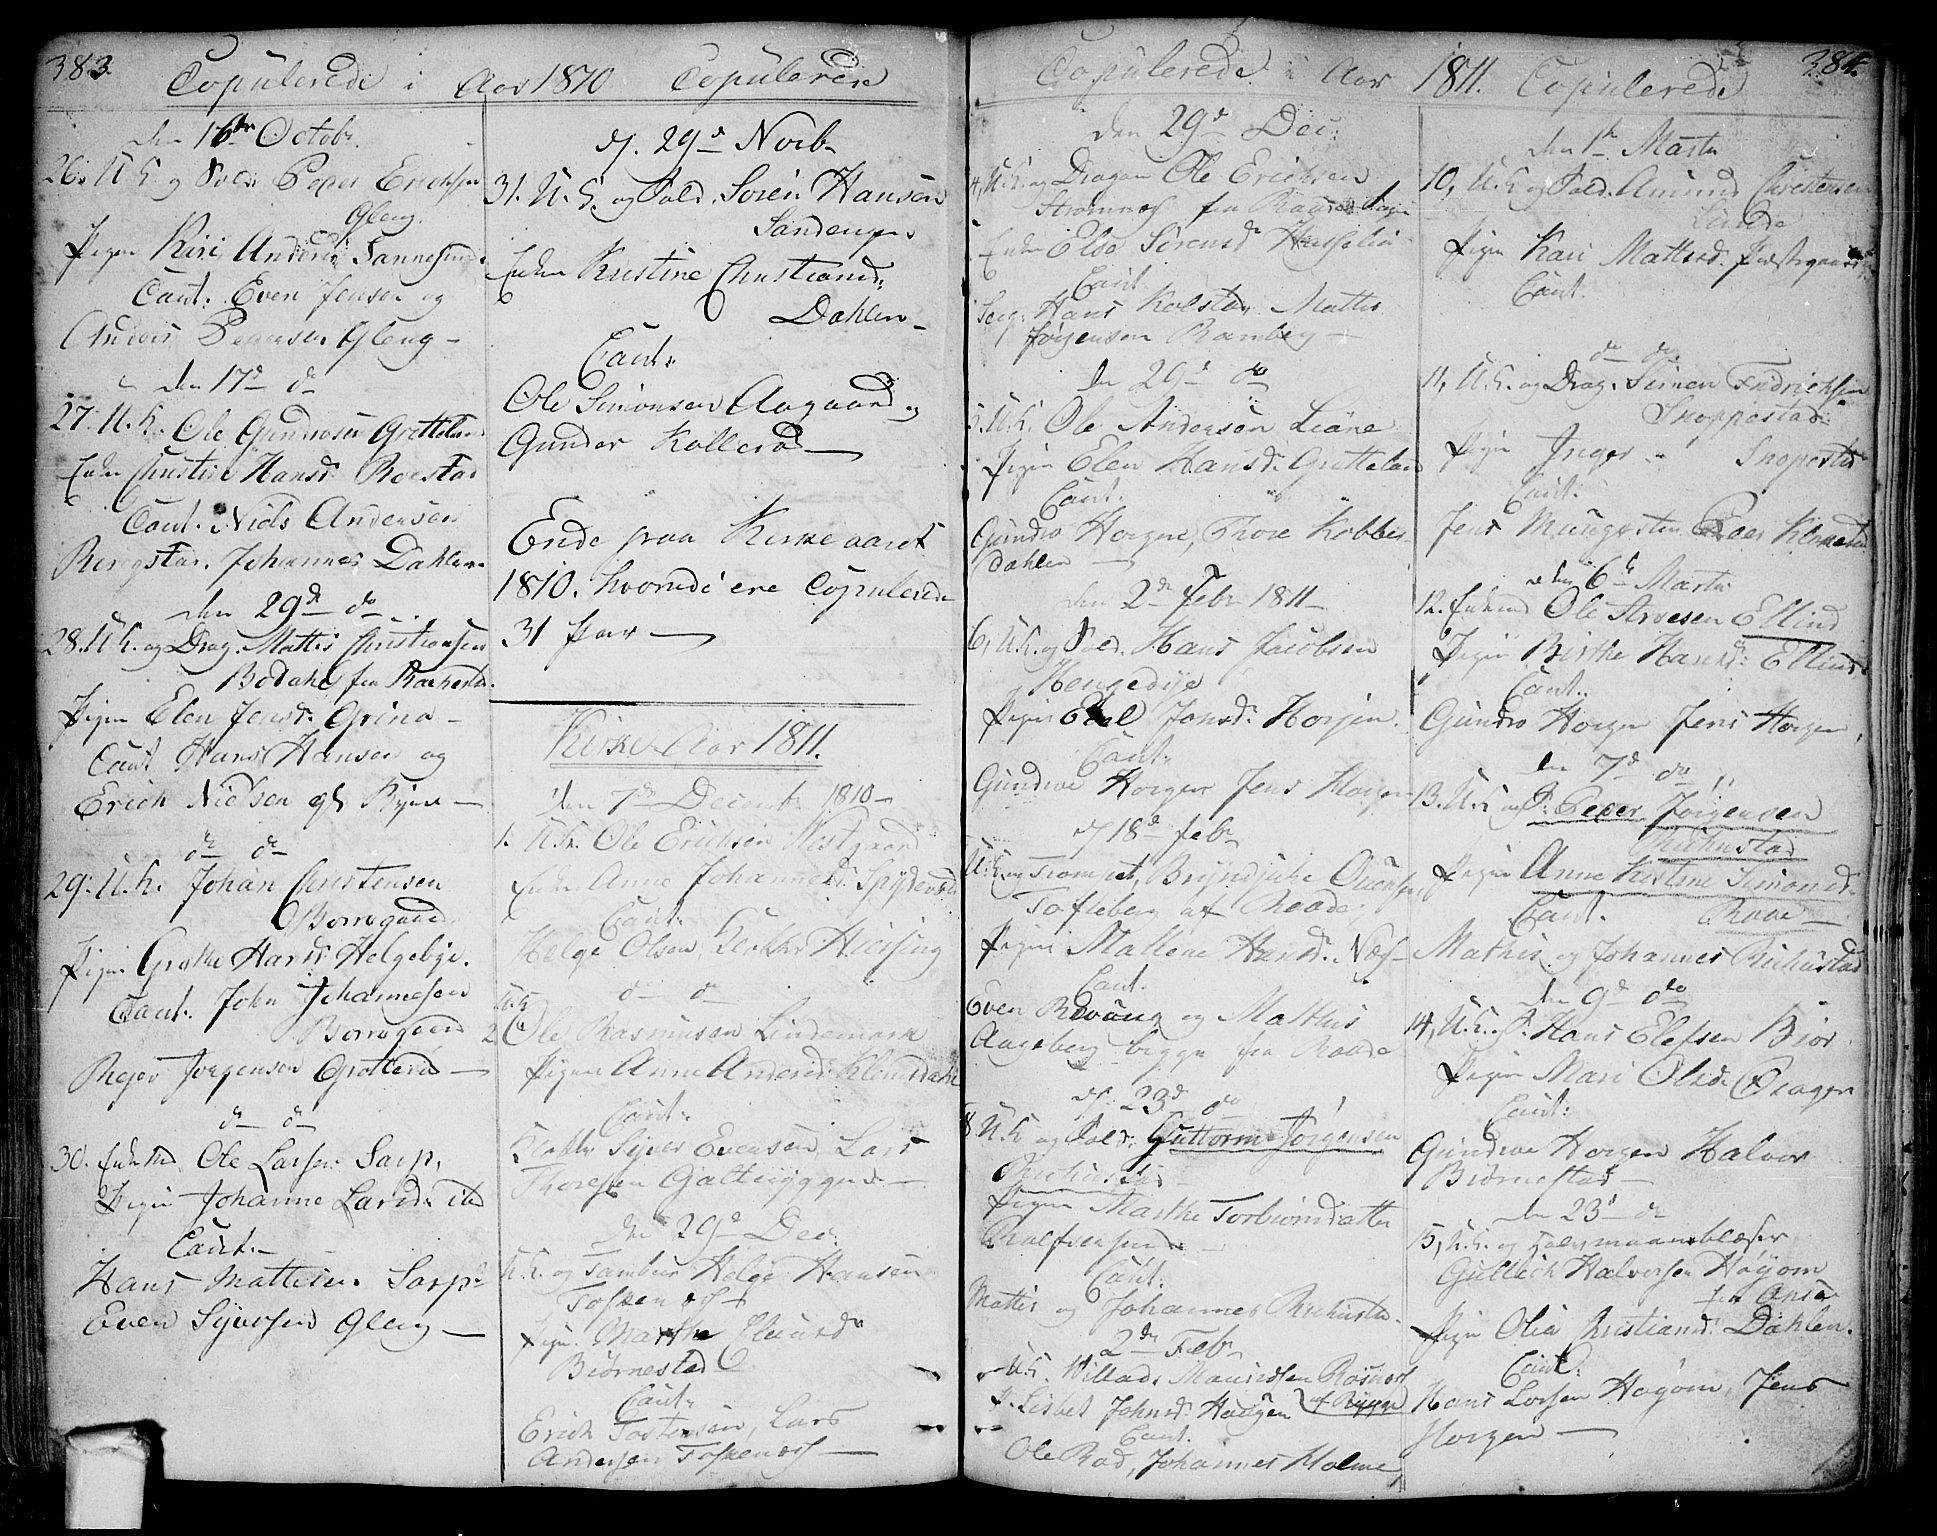 383.
Copulerede i Aar 1810 Copulerede
den 16de Octobr
26. U. K. og Sold: Peder Erichsen
Gleng.
Pigen Kiri Andersd: Sannesund.
Caut: Even Jensen og
Anders Pedersen Gleng
den 17d do
27. U. K. Ole Gundrosen Grotteland
Enken Christine Hansd: Roestad
Caut. Niels Andersen
Ringstad, Johannes Dahlen
den 29de do
28. U. K. og Drag. Mattis Christiansen
Bodahl fra Rachestad.
Pigen Elen Jensd: Grina
Caut Hans Hansen og
Erich Nielsen
do do
29. U. K. Johan Christensen
Borregaard
Pigen Grethe Hansd: Helgebye.
Caut. John Johannesen
Borregaard
Reyer Jørgensen Grotterød
do do
30. Enkemd Ole Larsen Sarp,
Pigen Johanne Larsd: ibd
Caut.
Hans Mattisen Sarp
Even Syversen Gleng
d. 29d Novb
31. U. K. og Sold. Søren Hansen
Sandengen
Enken Kristine Christiansd:
Dahlen
Caut:
Ole Simonsen Aagaard og
Gunder Kollerød
Ende paa Kirkeaaret
1810. hvorudi ere Copulerede
31 Par
Kirke-Aar 1811.
den 7de Decembr 1810
1. U. K. Ole Erichsen Westgaard
Enken Anne Johannesd: Spydevold
Caut:
Helge Olsen, Klokker Hiersing
do do
U. K.
2 Ole Rasmusen Lindemark
Pigen Anne Andersd: Klemsdahl
Caut:
Klokker Syver Evensen, Lars
Thoresen Galteryggen
den 29d Dec:
U. K. og Tambur Helge Hansen
Toskenæs
Pigen Marthe Ellensd:
Biørnestad
Caut:
Erich Tostensen, Lars
Andersen Toskenæs
384.
Copulerede i Aar 1811. Copulerede
den 29d Dec:
4, U. K. og Dragon Ole Erichsen
Strømnes fra
Enken Else Sørensd: Hasselin
Caut
Serg: Hans Kolstad Mattis
Jørgensen Ramberg
den 29d do
5. U. K. Ole Andersen Liane
Pigen Elen Hansd: Grotteland
Caut:
Gundro Horgen, Thore Kobber-
dahlen
den 2de Febr 1811
6, U. K. og Sold. Hans Jacobsen
Hengedye
Pigen Edel Jonsd: Horgen
Caut:
Gundroe Horgen Jens Horgen
d 18d Febr
U. K. og Trompet, Bryndjule Ouensen
Tofteberg af Raade,
Pigen Mallene Hansd: Næs
Caut.
Even Revaug og Mathis
Aageberg begge fra Raade
d. 23d do
8 U. K. og Sold: Guttorm Jørgensen
Richustad
Pigen Marthe Torbiørnsdatter
Rolfsensund
Caut:
Mattis og Johannes Richustad
2de Febr
U. K. Willads Mauridsen Rosnæs
P. Lisbet Johnsd: Haugen af Rygge
Caut.
Ole Rød, Johannes Holme
den 1te Martii
10, U. K. og Sold. Amund Christensen
Pigen Kari Mathisd: Prestegaard
Caut.
do do
11, U. K. og Drag. Simen Fridrichsen
Snoppestad
Pigen Inger Snopestad
Caut:
Jens Peder Klemetsd
den 6te Martii
12. Enkemd Ole Arvesen Ellind
Pigen Birthe Hansd: Ellind
Caut:
Gundro Horgen Jens Horgen,
den 7d do
13. U. K. og S: Peder Jørgensen
Richustad
Pigen Anne Kistine Simonsd.
Raae
Caut.
Mathis og Johannes Richustad
den 9d do
14, U. K. S. Hans Elefsen Biør
Pigen Mari Olsd: Opager
Caut:
Gundroe Horgen Halvor
Biørnestad
den 23d do
15, U. K. og Halvmaaneblæser
Gullich Halvorsen Høyom
fra Onsø
Pigen Olia Kristiansd: Dahlen.
Caut:
Hans Larsen Høyom, Jens
Horgen